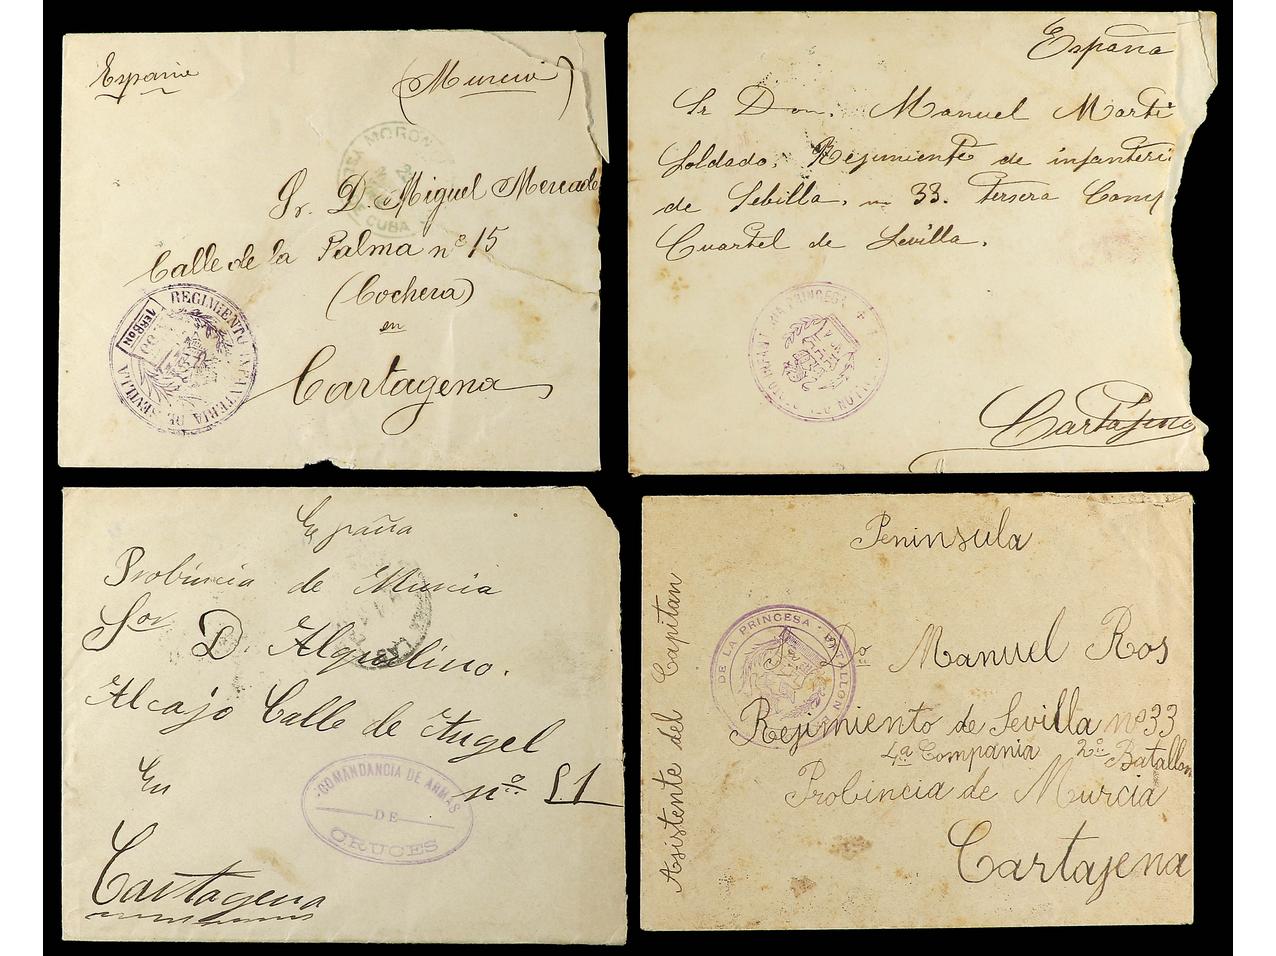 España
(Murcia)
MORON
CUBA
Sr. D. Miguel Mercade
Calle de la Palma nº 15
(Cochera)
en
Cartagena
REGIMIENTO INFANTERIA DE SEVILLA
España
Sr Don. Manuel Marti
Soldado, Rejimiente de infanteri
de Sebilla. n 33. tersera Comp
Cuartel de Sevilla.
INFANTERIA PRINCESA
Cartajena
España
Probincia de Murcia
Sor D. Alquilino.
Alcajo Calle de Angel
En nº. 51
COMANDANCIA DE ARMAS
DE
CRUCES
Cartagena
Peninsula
Asistente del Capitan
DE LA PRINCESA · BATALLON
Dº Manuel Ros
Rejimiento de Sevilla nº 33
4ª Compania 2º Batallon
Probincia de Murcia
Cartajena